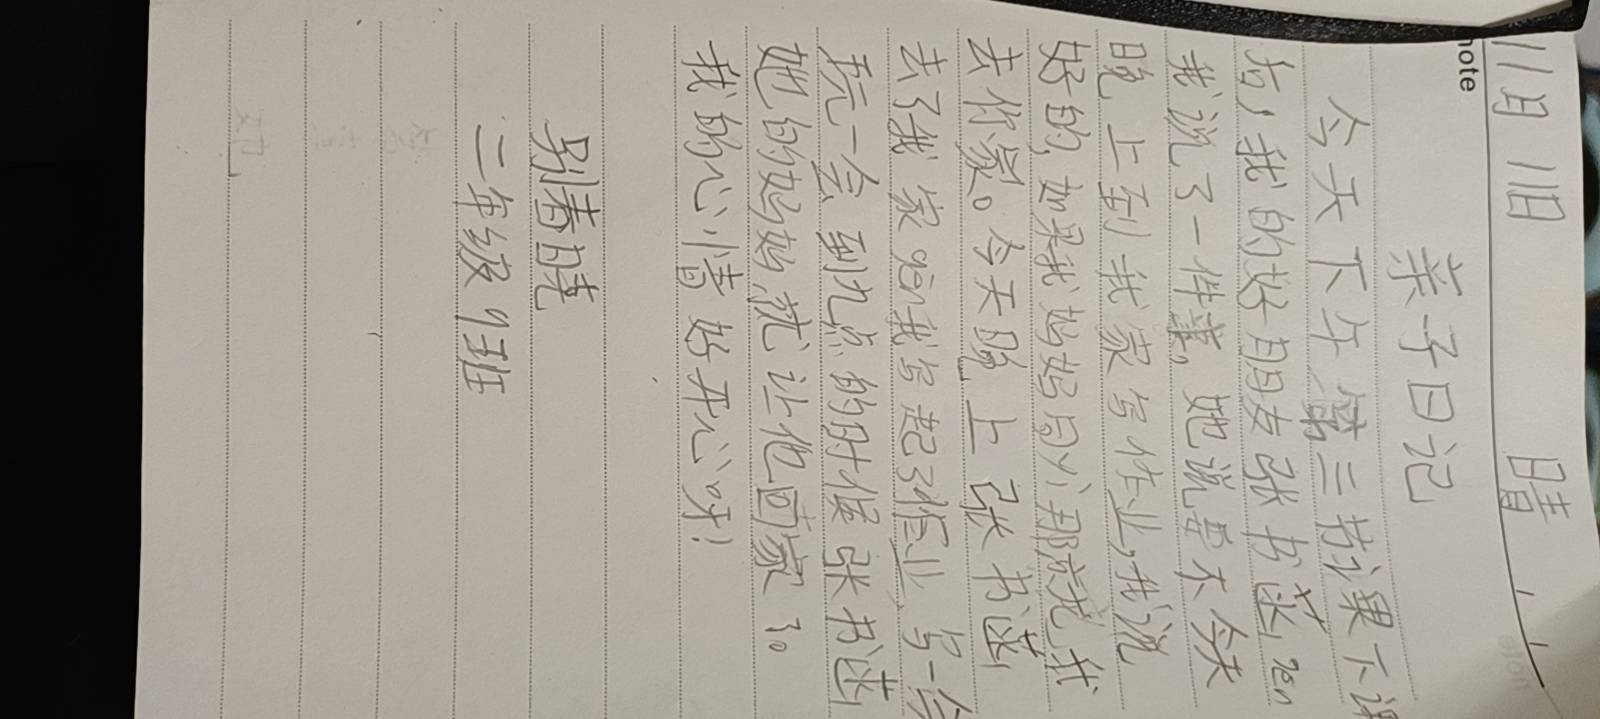 note
11月11日 晴
亲子日记
今天下午第三节课下课
后,我的好朋友张书涵,gen
我说了一件事,她说要不今天
晚上到我家写作业,我说
好的,如果我妈妈同议那就我
去你家。今天晚上张书涵
去了我家pei我写起了作业,写一会
玩一会到九点的时候张书涵
她的妈妈,就让他回家了。
我的心情好开心呀!
别春晓
二年级9班